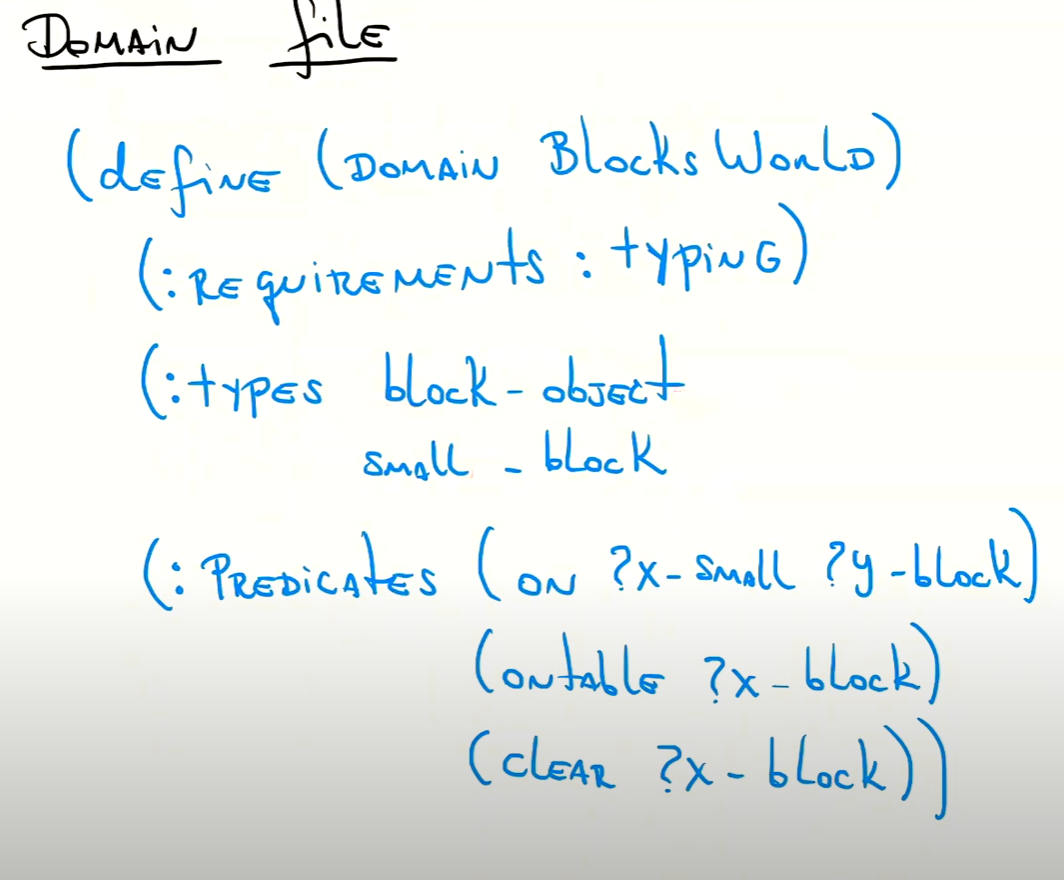 Domain file
(define (Domain Blocks World)
(:requirements :typing)
(:types block - object
small - block
(:Predicates (on ?x - small ?y - block)
(ontable ?x - block)
(clear ?x - block))